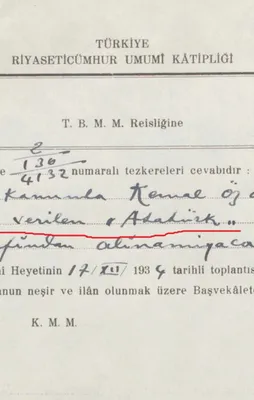 TÜRKİYE
RİYASETİCÜMHUR UMUMÎ KÂTİPLİĞİ
T. B. M. M. Reisliğine
2
136
e 4132 numaralı tezkereleri cevabıdır :
Kanunla Kemal Öz
verilen "Atatürk"
afından alınamıyaca
ni Heyetinin 17/XII/1934 tarihli toplantıs
unun neşir ve ilân olunmak üzere Başvekâlete
K. M. M.